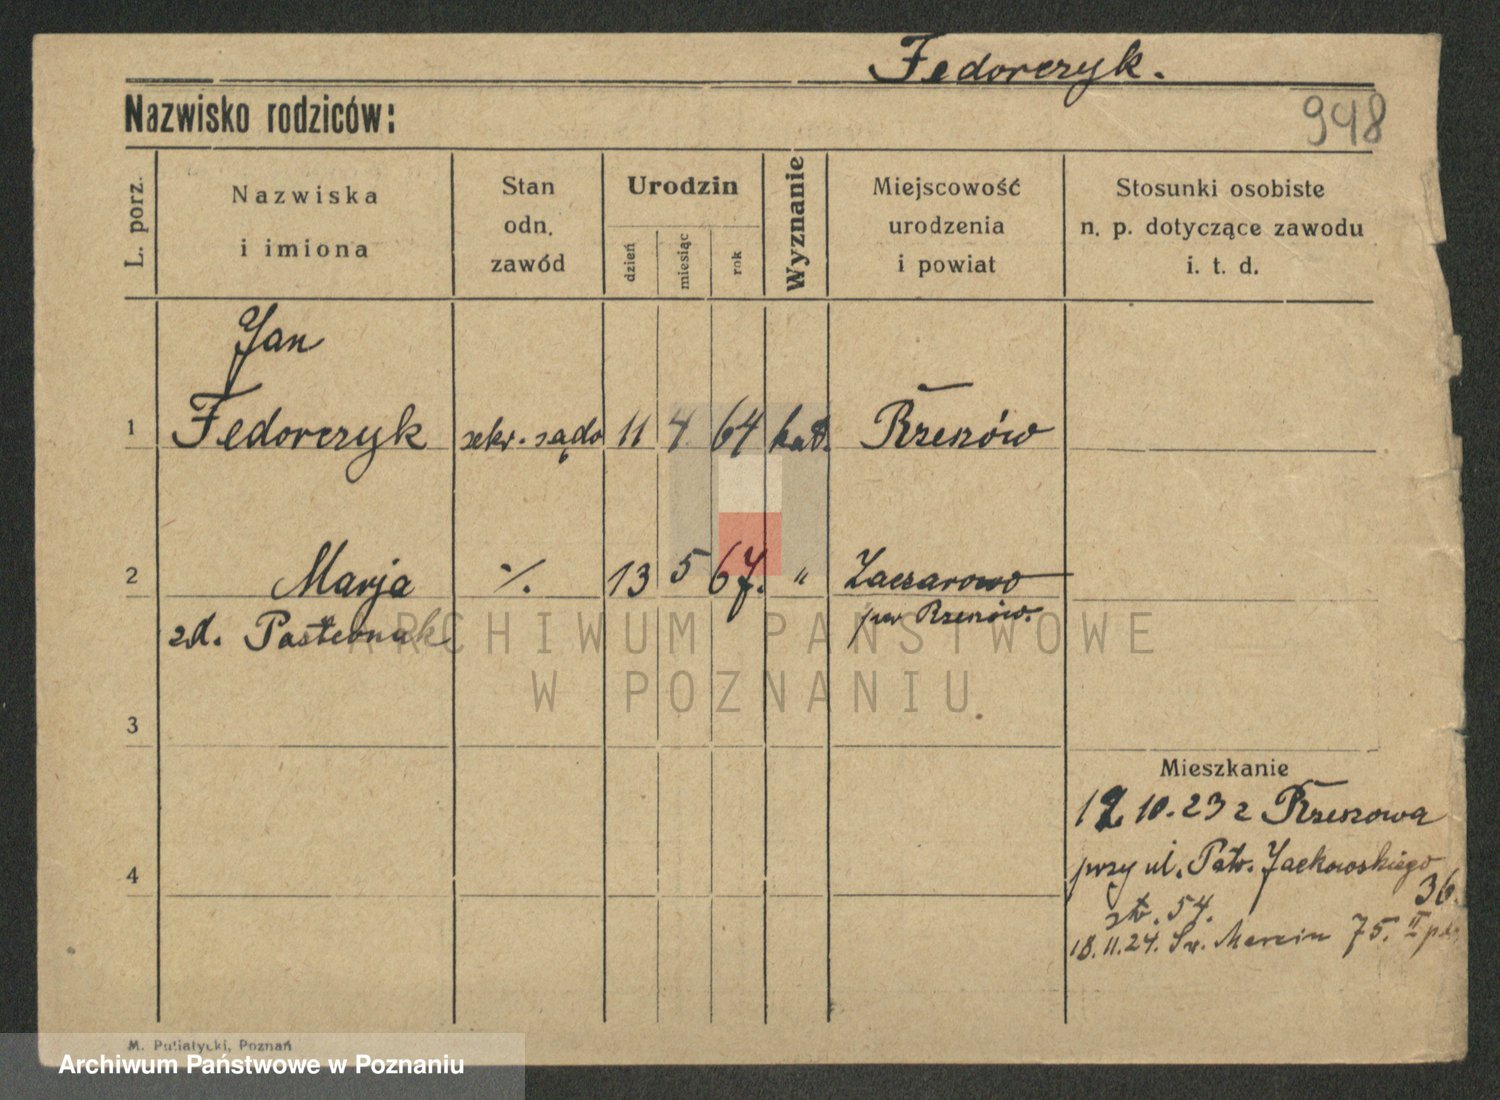 Fedorczyk.
Nazwisko rodziców:
948
L. porz.
Nazwiska
i imiona
Stan
odn.
zawód
Urodzin
dzień
miesiąc
rok
Wyznanie
Miejscowość
urodzenia
i powiat
Stosunki osobiste
n. p. dotyczące zawodu
i. t. d.
Jan
1 Fedorczyk sekr. sądo 11 4 64 kat. Rzeszów
2 Marja % 13 5 67. " Zaczarowo
zd. Pasternak pow Rzeszów.
ARCHIWUM PAŃSTWOWE
W POZNANIU
3
Mieszkanie
12 10. 23 z Rzeszowa
4 przy ul. Patr. Jackowskiego
36.
st. 54.
18. 11. 24. Św. Marcin 75. II ptr
M. Putiatycki, Poznań
Archiwum Państwowe w Poznaniu